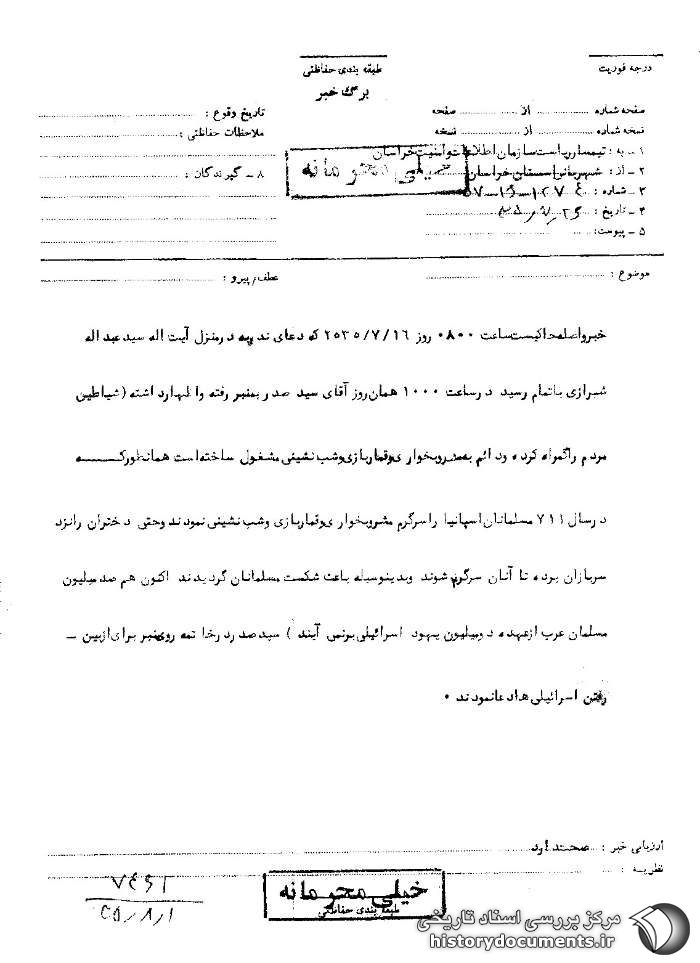 درجه فوریت
طبقه بندی حفاظتی
برگ خبر
صفحه شماره ............ از ............ صفحه
نسخه شماره ............ از ............ نسخه
۱ ـ به : تیمسار ریاست سازمان اطلاعات و امنیت خراسان
۲ ـ از : شهربانی استان خراسان
۳ ـ شماره :
۴ ـ تاریخ :
۵ ـ پیوست:
تاریخ وقوع :
ملاحظات حفاظتی :
۸ ـ گیرندگان :
خیلی محرمانه
موضوع :
عطف/پیرو :
خبر واصله حاکیست ساعت ۰۸۰۰ روز ۲۵۳۵/۷/۱۶ که دعای ندبه در منزل آیت اله سید عبد اله
شیرازی باتمام رسید در ساعت ۱۰۰۰ همان روز آقای سید صدر بمنبر رفته و اظهار داشته (شیاطین
مردم را گمراه کرده و دائم به مشروبخواری و قماربازی و شب نشینی مشغول ساخته است همانطور که
در سال ۷۱۱ مسلمانان اسپانیا را سرگرم مشروبخواری و قماربازی و شب نشینی نمودند و حتی دختران را نزد
سربازان برده تا آنان سرگرم شوند و بدینوسیله باعث شکست مسلمانان گردیدند اکنون هم صد میلیون
مسلمان عرب از عهده دو میلیون یهود اسرائیلی برنمی آیند ) سید صدر در خاتمه روی منبر برای ازبین ـ
رفتن اسرائیلی ها دعا نمودند ۰
ارزیابی خبر : صحت دارد
نظریه :
خیلی محرمانه
طبقه بندی حفاظتی
۷۴۶۲
۳۵/۸/۱
مرکز بررسی اسناد تاریخی
historydocuments.ir